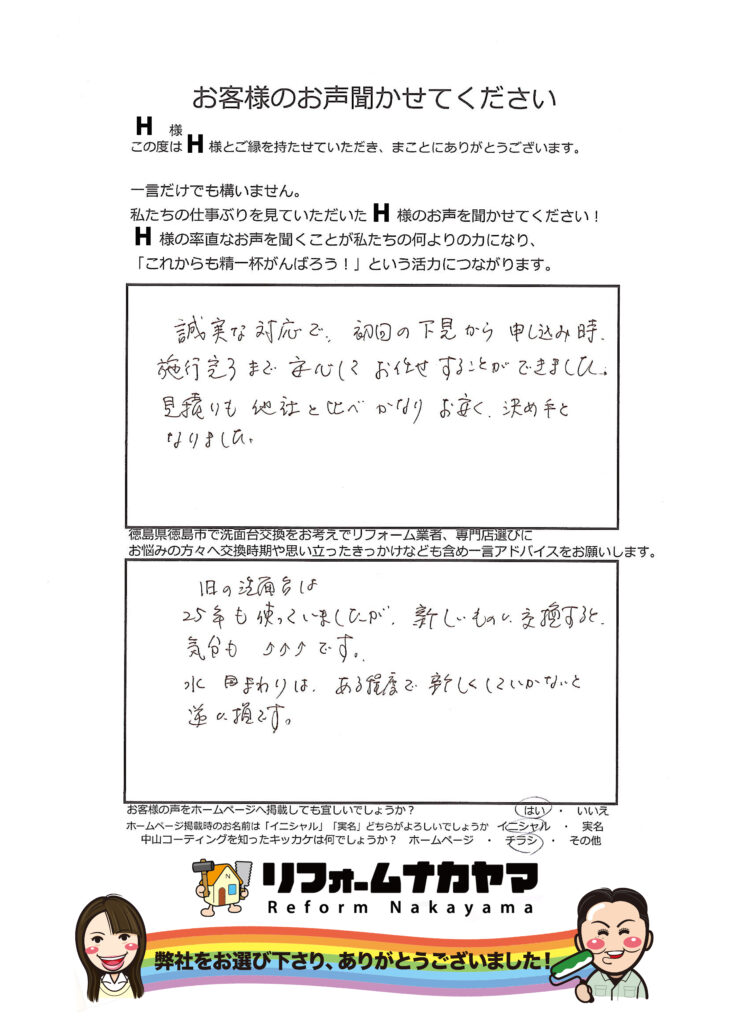 お客様のお声聞かせてください
H 様
この度は H 様とご縁を持たせていただき、まことにありがとうございます。
一言だけでも構いません。
私たちの仕事ぶりを見ていただいた H 様のお声を聞かせてください！
H 様の率直なお声を聞くことが私たちの何よりの力になり、
「これからも精一杯がんばろう！」という活力につながります。
誠実な対応で、初回の下見から申し込み時、
施行完了まで安心してお任せすることができました。
見積りも他社と比べかなりお安く、決め手と
なりました。
徳島県徳島市で洗面台交換をお考えでリフォーム業者、専門店選びに
お悩みの方々へ交換時期や思い立ったきっかけなども含め一言アドバイスをお願いします。
旧の洗面台は
25年も使っていましたが、新しいものに交換すると、
気分も ↑↑↑です。
水回まわりは、ある程度で新しくしていかないと
逆に損です。
お客様の声をホームページへ掲載しても宜しいでしょうか？ はい ・ いいえ
ホームページ掲載時のお名前は「イニシャル」「実名」どちらがよろしいでしょうか イニシャル ・ 実名
中山コーティングを知ったキッカケは何でしょうか？ ホームページ ・ チラシ ・ その他
N
リフォームナカヤマ
Reform Nakayama
弊社をお選び下さり、ありがとうございました！